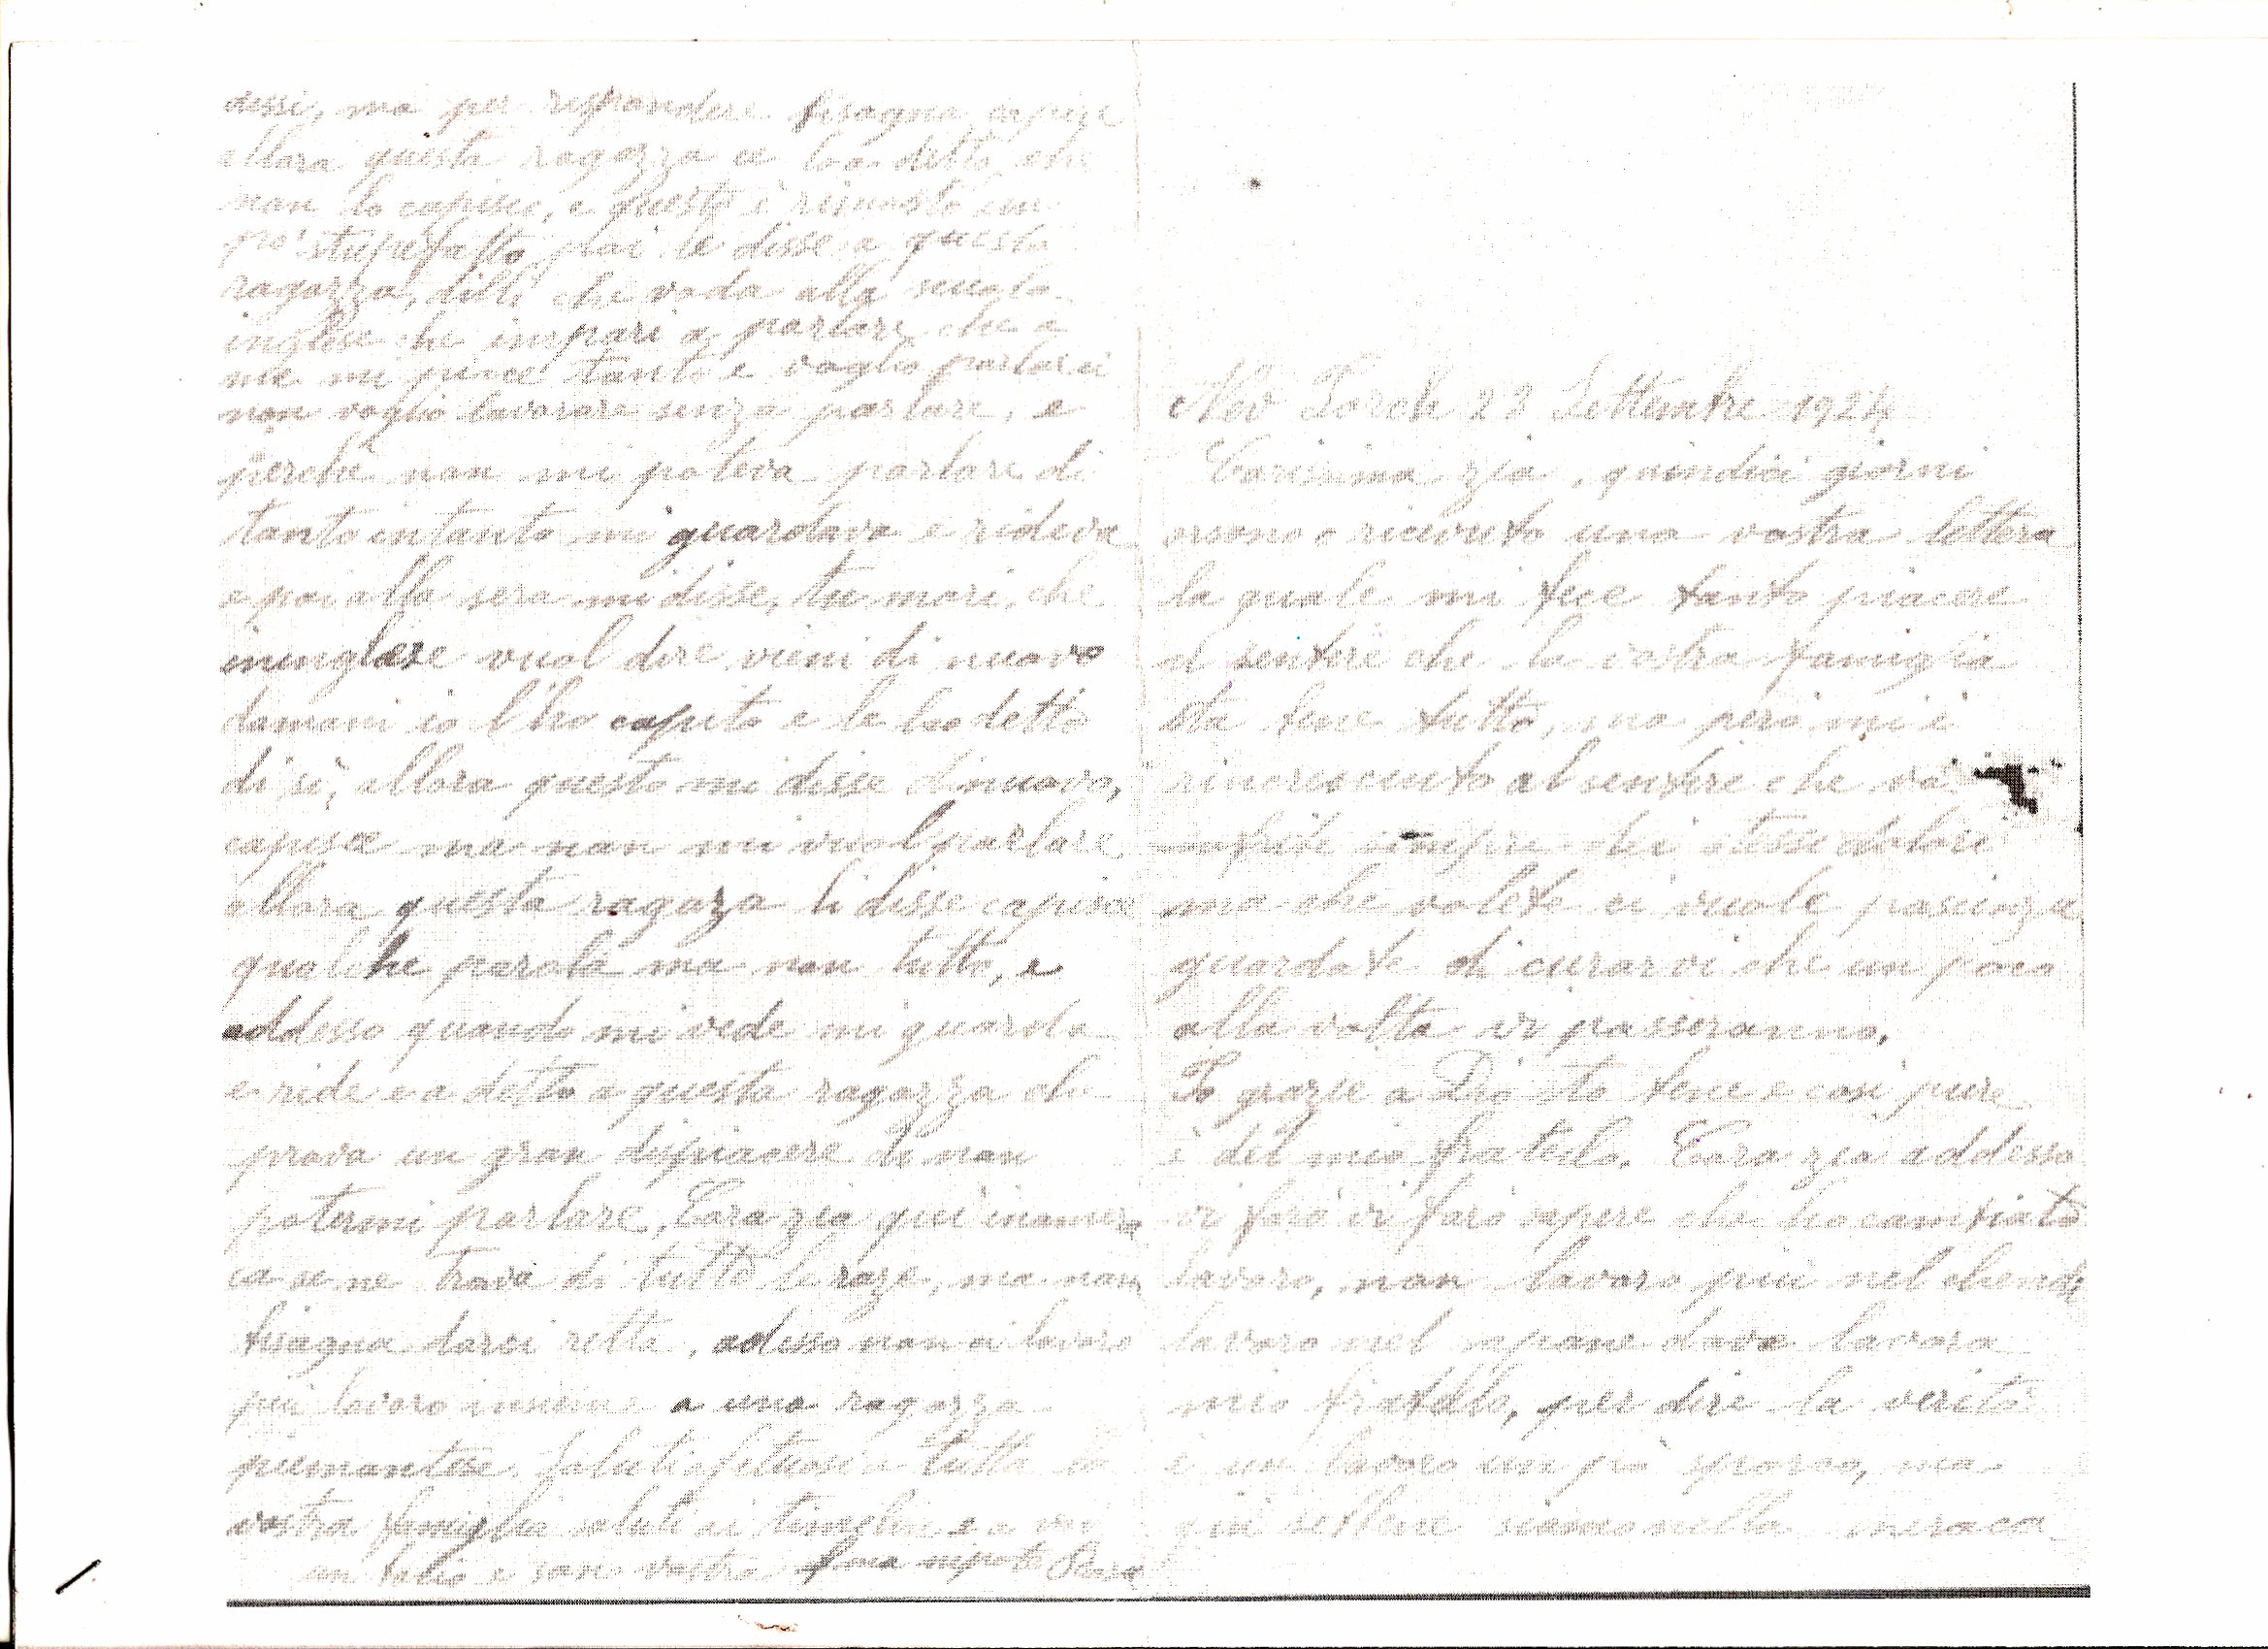 dessi, ma per rispondere bisogna capire
allora questa ragazza ce lo a detto che
non lo capisco, e questo è rimasto un
po' stupefatto poi le disse a questa
ragazza, dilli che vada alla scuola
inglese che impari a parlare che a
me mi piace tanto e voglio parlarci
non voglio lavorare senza parlare, e
perchè non mi poteva parlare di
tanto intanto mi guardava e rideva
e poi alla sera mi disse, tu mori, che
ininglese vuol dire vieni di nuovo
domani io l'ho capito e le ho detto
di sì, allora questo mi disse dinuovo,
capisce ma non mi vuol parlare
allora questa ragaza li disse capisce
qualche parola ma non tutto, e
addesso quando mi vede mi guarda
e ride e a detto a questa ragazza che
prova un gran dispiacere di non
potermi parlare, Cara zia qui inameri
ca se ne trova di tutte le raze, ma non
bisogna darci retta, adesso non ci lavoro
più lavoro insieme a una ragazza
piemontese. Saluti afetuosi a tutta la
vostra famiglia saluti ai e a voi
un bacio e sono vostra nipote Rosa
Nev Jorch 23 Settembre 1924
Carissima zia, quindici giorni
orsono o ricevuto una vostra lettera
la quale mi fece tanto piacere
al sentire che la vostra famiglia
sta bene tutto, ma però mi è
rincresciuto al sentire che
sempre stesse dolori
ma che volete ci vuole pasienza
guardate di curarvi che un poco
alla volta vi passeranno.
Io grazie a Dio sto bene e così pure
è del mio fratello. Cara zia addesso
vi farò vi farò sapere che ho cambiato
lavoro, non lavoro più nel chendi
lavoro nel sapone dove lavora
mio fratello, per dire la verità
è un lavoro un pò sporco, ma
qui sebbene siamo nella meraca